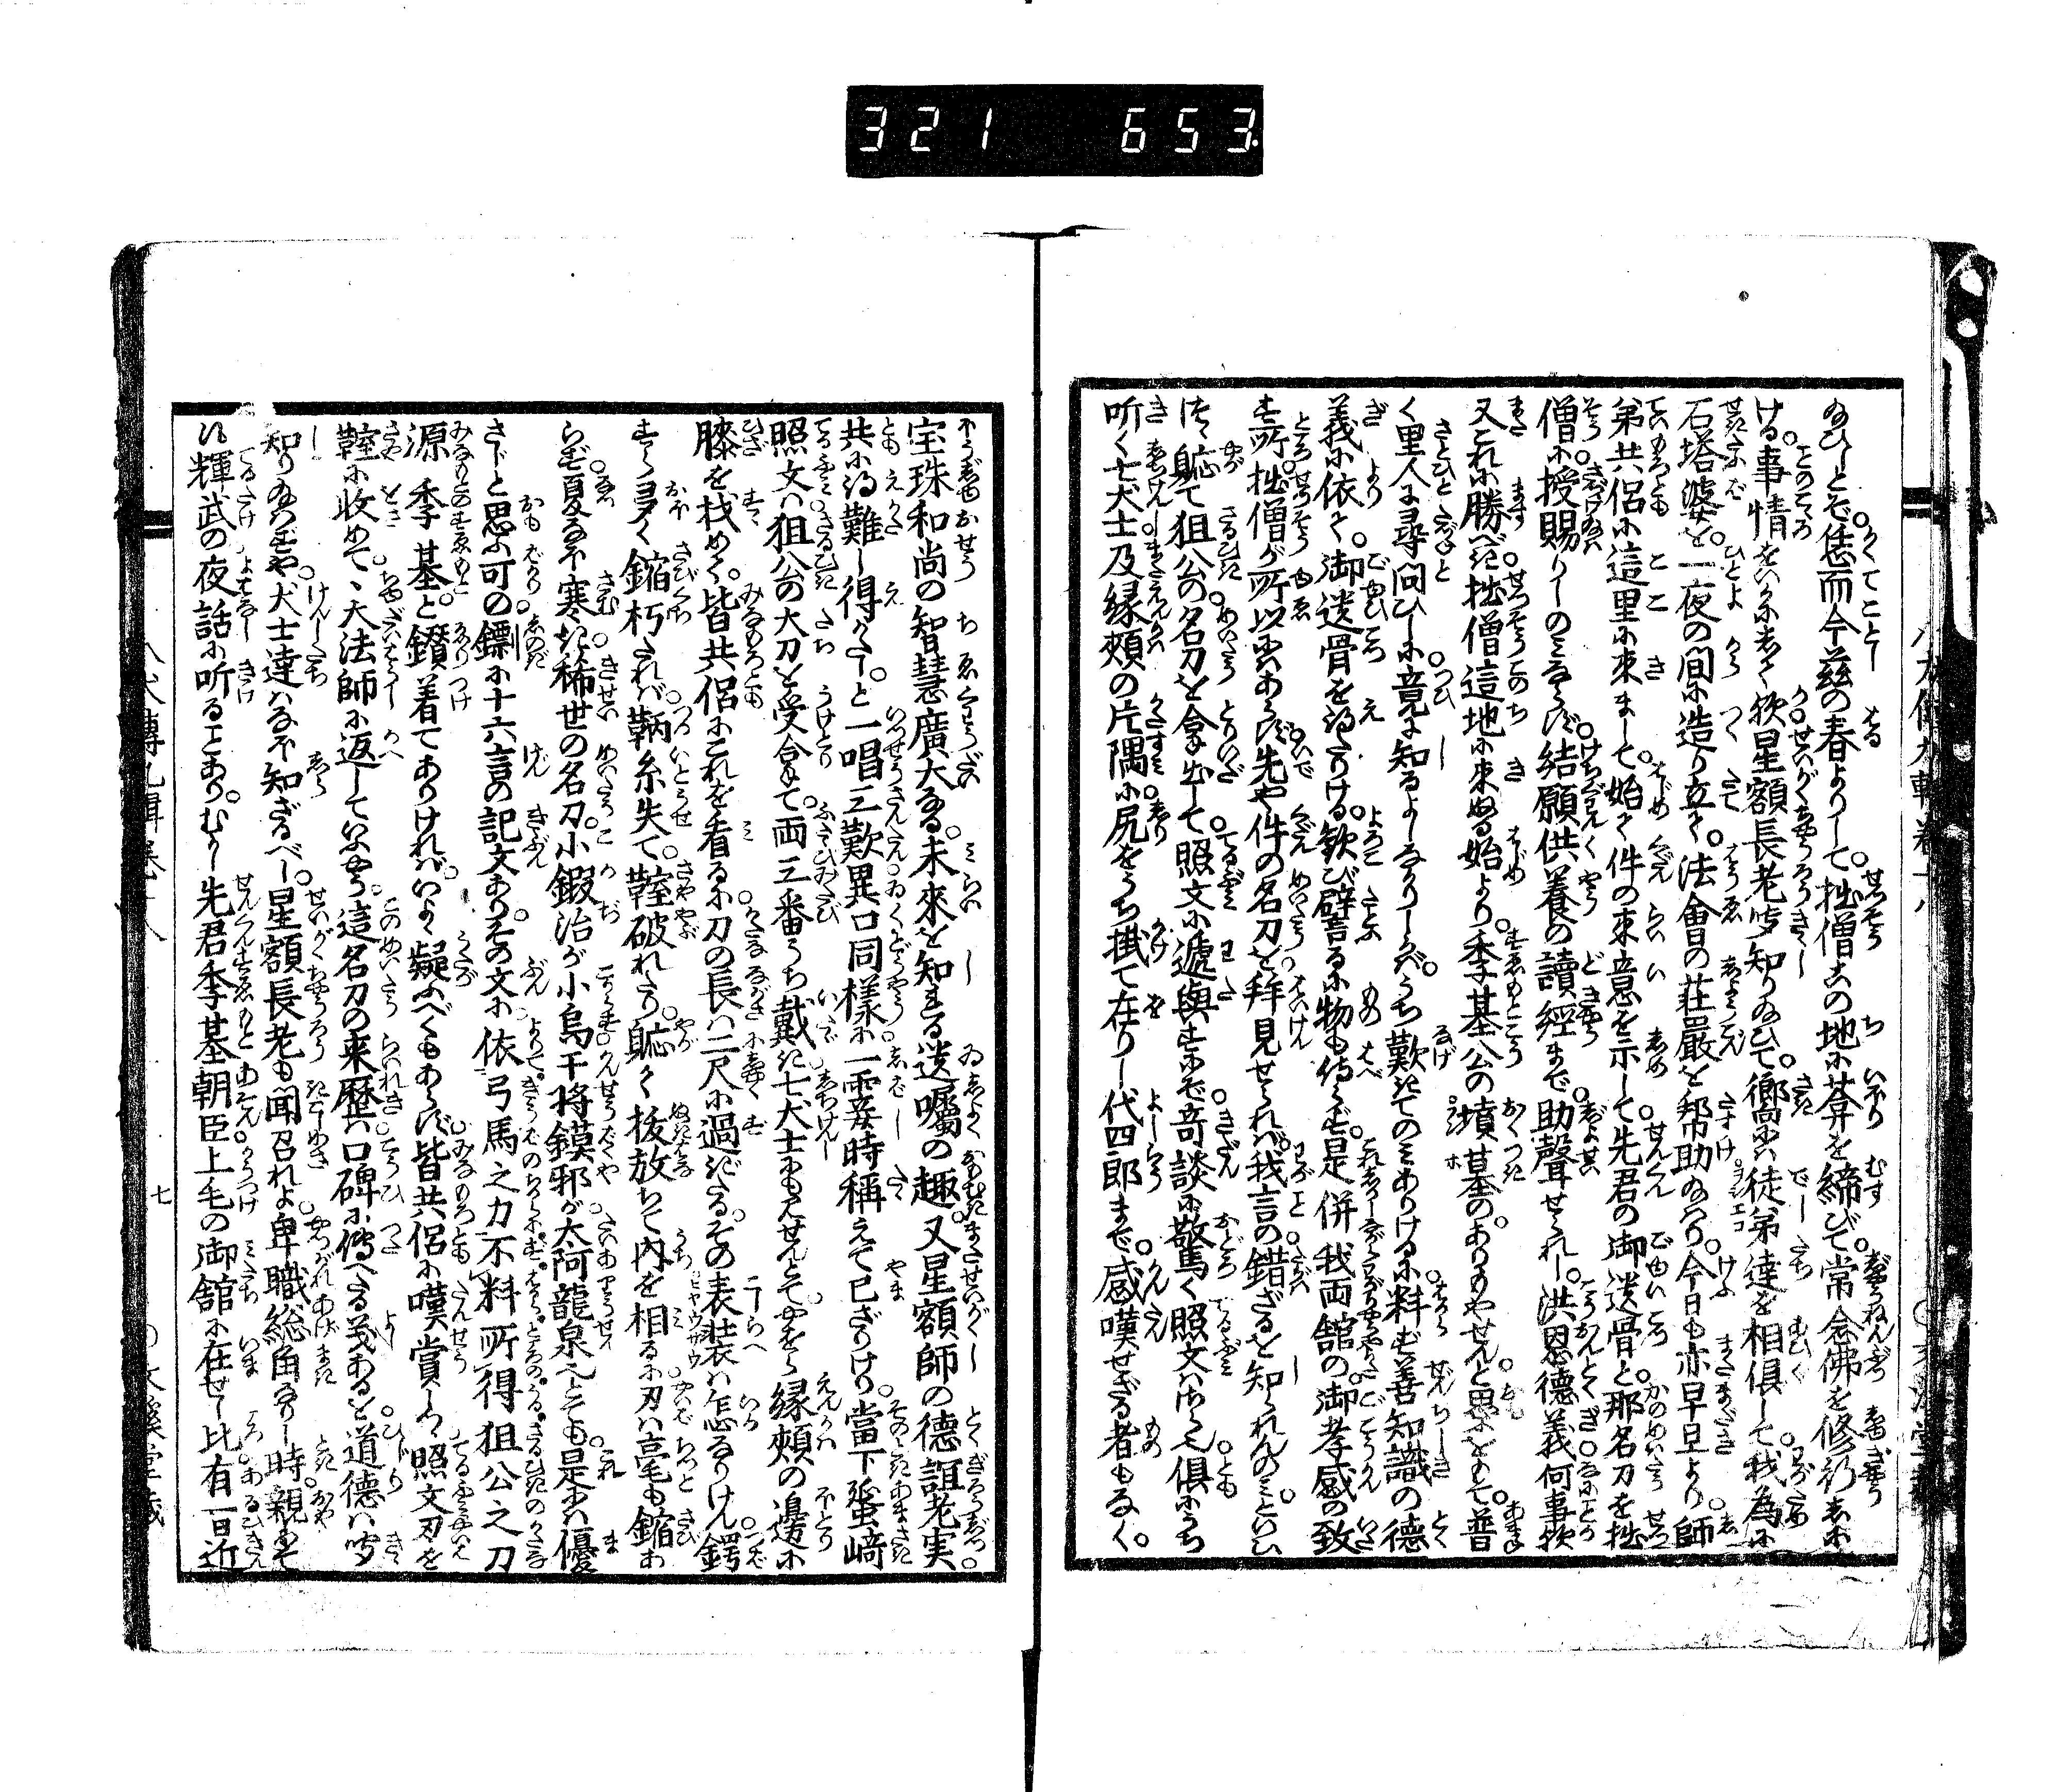 321 653
ゐひしとぞ。恁而今茲の春よりして。拙僧玄の地に菴を締びて。常念佛を修行しぬ
ける。事情をいかにしてか星額長老は知りゐひて。嚮には徒弟達を相倶して我為に
石塔婆を。一夜の間に造り立て。法會の荘嚴を幇助ゐへり。今日も亦早旦より。師
弟共侶に這里に来まして。始て件の来意を示して先君の御送骨と。那名刀を拙
僧に授賜りしのみならず。結願供養の讀經まで。助聲せられし。洪恩德義何事欤
又これに勝べき。拙僧這地に来ぬる始より。季基公の墳墓の。ありもやせんと思ふをもて。普
く里人に尋問ひしに竟に知るよしなかりしかば。うち歎きてのみありけるに料ず善知識の德
義に依て。御送骨を得たりける。歓び譬るに物も侍らず。是併我両舘の。御孝感の致
す所。拙僧が所以にはあらず。先や件の名刀を拜見せられば。我言の錯ざるを知られんのみといひ
つゝ軈て狙公の名刀を拿出して照文に遞與すにぞ。奇談に驚く照文はさら也。倶にうち
听く七犬士及縁頬の片隅に尻をうち掛て在りし代四郎まで。感嘆せざる者もなく。
宝珠和尚の智慧廣大なる。未來を知れる送囑の趣。又星額師の德誼老実。
共に得難し得がたし。と一唱三歎異口同樣に一霎時稱えて已ざりけり。當下蜑﨑
照文は狙公の大刀を受拿て。両三番うち戴き七犬士にも見せんとてやをら縁頬の邊に
膝を找めて。皆共侶にこれを看るに刀の長は二尺に過ぎたる。その表装は怎なりけん鍔
すら多く鏥朽たれば鞆糸失て。鞘破れたり。軈て抜放ちて内を相るに刃は毫も鏥ね
らず。夏なほ寒き稀世の名刀。小鍛冶が小烏干将鏌邪が太阿龍泉といふとも。是には優
さじと思ふ可の鏢に十六言の記文あり。その文に依弓馬之力不料所得狙公之刀
源季基と鐟着てありければ。いよゝ疑ふべくもあらず。皆共侶に嘆賞しつゝ照文刃を
鞘に收めて、大法師に返していふやう這名刀の来歷は口碑に傳へたる義あるを道德は听
知りゐはずや。犬士達はなほ知ざるべし。星額長老も聞召れよ。卑職総角なりし時。親にて
候輝武の夜話に听ることあり。むかし先君季基朝臣上毛の御舘に在せし比有一日近
八犬傳九輯卷十八
七